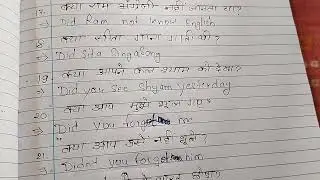 17. क्या राम अंग्रेजी नहीं जानता था?
→ Did Ram not know English
18. क्या सीता गाना गाती थी?
→ Did Sita Singasong
19. क्या आपने कल श्याम को देखा?
→ Did you see Shyam yesterday
20. क्या आप मुझे भूल गए?
→ Did you forget me
21. क्या आप उसे नहीं भूले?
→ Didnt you forget him